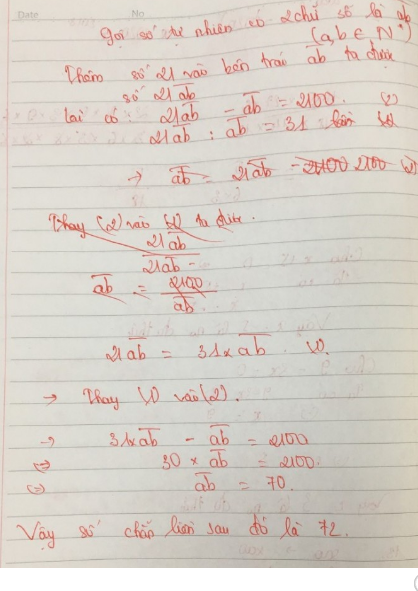 Date No
Gọi số tự nhiên có 2 chữ số là ab
(a,b ∈ N*)
Thêm số 21 vào bên trái ab ta được
số 21ab
lại có: 21ab - ab = 2100. (2)
21ab : ab = 31
→ ab = 21ab - 2100 (2)
Thay (2) vào (1) ta được.
21ab
21ab -
ab = 2100
ab
21ab = 31 x ab. (1)
→ Thay (1) vào (2).
→ 31 x ab - ab = 2100
⇔ 30 x ab = 2100.
⇔ ab = 70
Vậy số chẵn liền sau đó là 72.